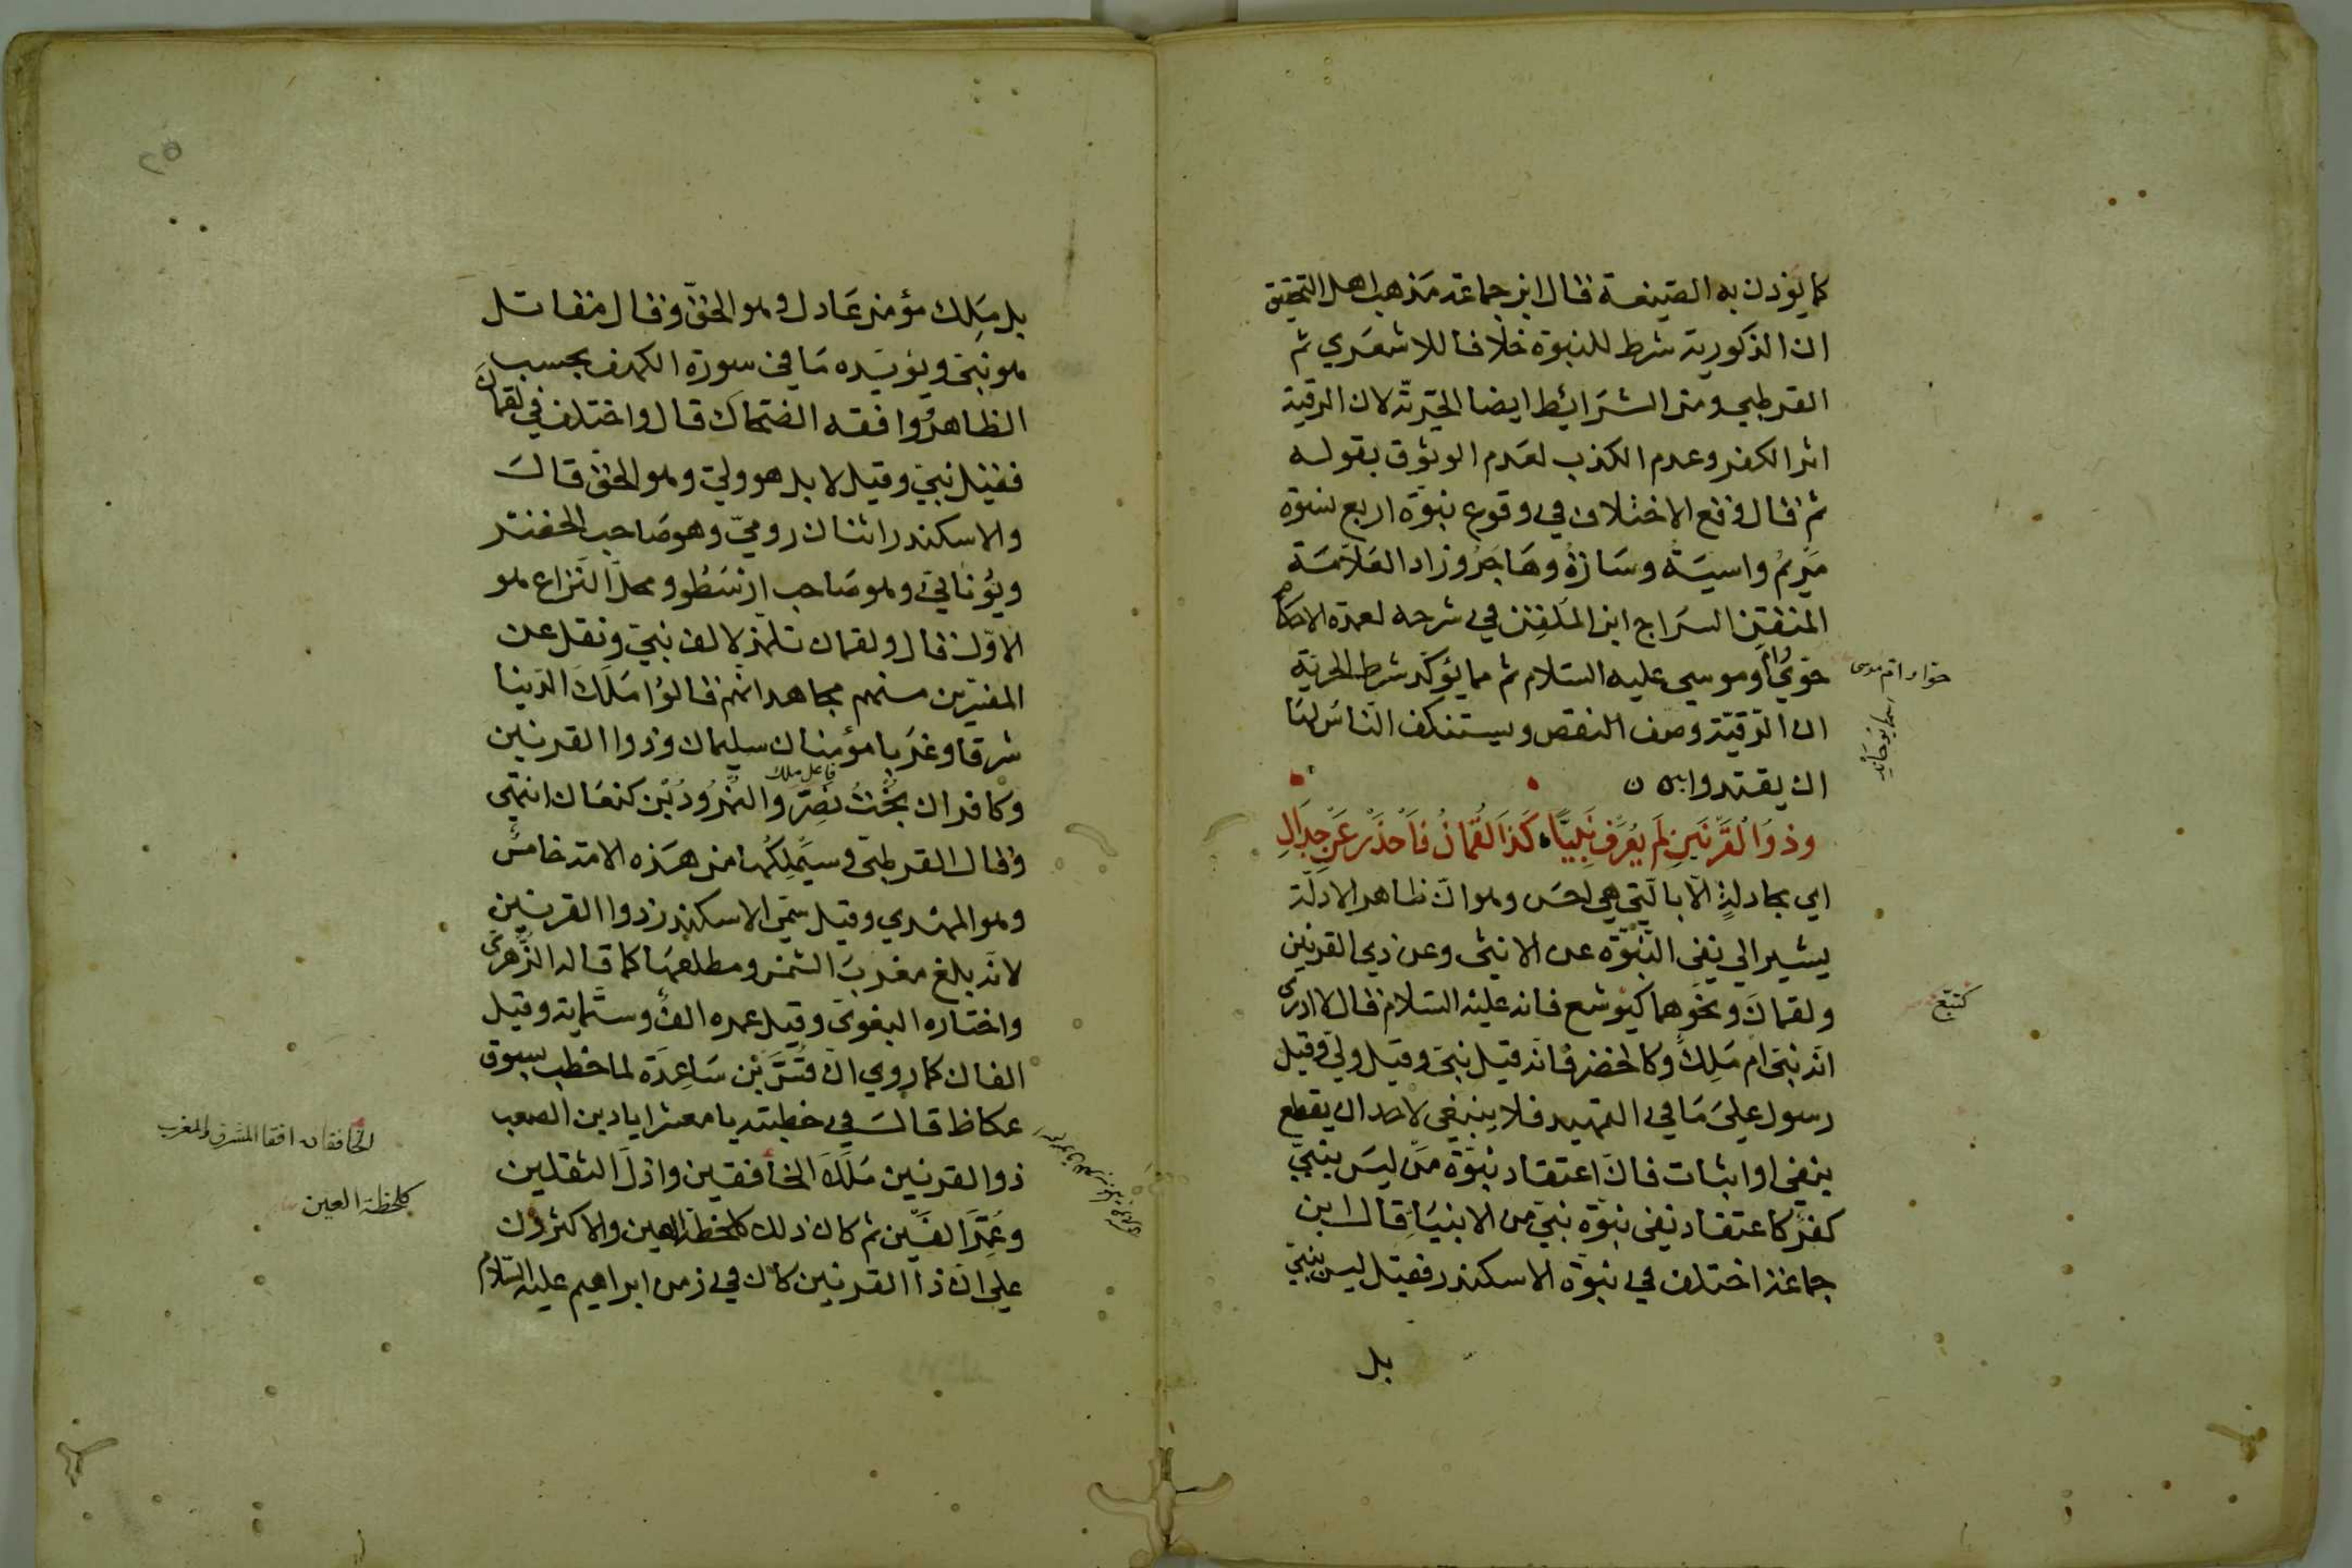 كما يؤذن به الصيغة قال ابن جماعة مذهب اهل التحقيق
ان الذكورية شرط للنبوة خلافا للاشعري ثم
القرطبي ومن الشرائط ايضا الحرّية لان الرقية
اثر الكفر وعدم الكذب لعدم الوثوق بقوله
ثم قال وقع الاختلاف في وقوع نبوّة اربع نسوة
مريم واسية وسارة وهاجر وزاد العلامة
المتقن السراج ابن الملقن في شرحه لعمدة الاحكام
حوّي وام موسي عليه السلام ثم مما يؤكّد شرط الحرية
ان الرّقيّة وصف النقص ويستنكف النّاس لها
ان يقتدوا به ن
وَذُوالْقَرْنَينِ لَم يُعْرَف نَبِيًّا كَذَا لُقْمَانُ فَاحْذَرْ عَنْ جِدَالِ
اي مجادلةٍ الّا بالّتي هي احسن وهو انّ ظاهر الادلّة
يشير الي نفي النّبوّة عن الانثى وعن ذي القرنين
ولقمان ونحوهما كيوشع فانه عليه السلام قال لا ادرى
انّه نبي ام ملك وكالخضر فانّه قيل نبي وقيل ولي وقيل
رسول على ما في التمهيد فلا ينبغي لاحد ان يقطع
بنفي او اثبات فانّ اعتقاد نبوّة من ليس بنبيّ
كفر كاعتقاد نفي نبوّة نبيّ من الانبياء قال ابن
جماعة اختلف في نبوّة الاسكندر فقيل ليس بنبيّ
بل
حوا و ام موسى
كتبّع
بل مَلِك مؤمن عَادل وهو الحقّ وقال مقاتل
هو نبيّ ويؤيّده مَا في سورة الكهف بحسب
الظاهر ووافقه الضحّاك قال واختلف في لقمان
فقيل نبيّ وقيل لا بل هو وليّ وهو الحق قال
والاسكندر اثنان روميّ وهو صَاحب الخضر
ويُونانيّ وهو صَاحب ارسَطُو ومحلّ النّزاع هو
الاوّل قال ولقمان تلمّذ لالف نبيّ ونقل عن
المفسّرين منهم مجاهد انّهم قالوا مَلَكَ الدّنيا
شرقا وغربا مؤمنان سليمان وذوا القرنين
فاعل ملك
وكافران بُخْتُ نَصّر والنُّمْرُودُ بْن كنعَان انتهى
وقال القرطبي وسيَملِكُها من هَذه الامّة خامسٌ
وهو المهدي وقيل سمّي الاسكندر ذوا القرنين
لانّه بلغ مغربَ الشّمس ومطلعهَا كما قاله الزُّهرىّ
واختاره البغويّ وقيل عمره الفٌ وستّماية وقيل
الفان كما روي انّ قُسَّ بْن سَاعِدَة لما خطب بسوق
عكاظ قال في خطبته يا معشر اياد بن الصعب
ذو القرنين مَلَكَ الخافقين واذلّ الثقلين
وعُمّر الفين ثم كان ذلك كلحظة العين والاكثرون
علي انّ ذا القرنين كان في زمن ابراهيم عليه السّلام
الخافقان افقا المشرق والمغرب
كلحظة العين
٢٥